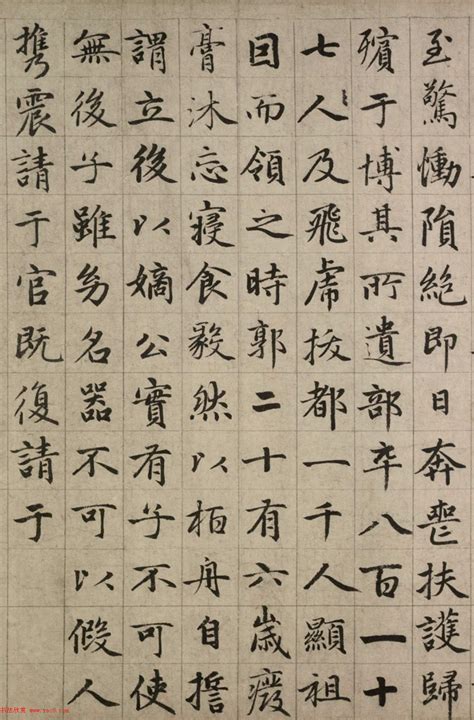 至驚慟隕絕即日奔喪扶護歸
殯于博其所遺部卒八百一十
七人及飛虎拔都一千人顯祖
囙而領之時郭二十有六歲廢
膏沐忘寢食毅然以栢舟自誓
謂立後以嫡公實有子不可使
無後子雖幼名器不可以假人
攜震請于官既復請于
书法欣赏 www.yac8.com